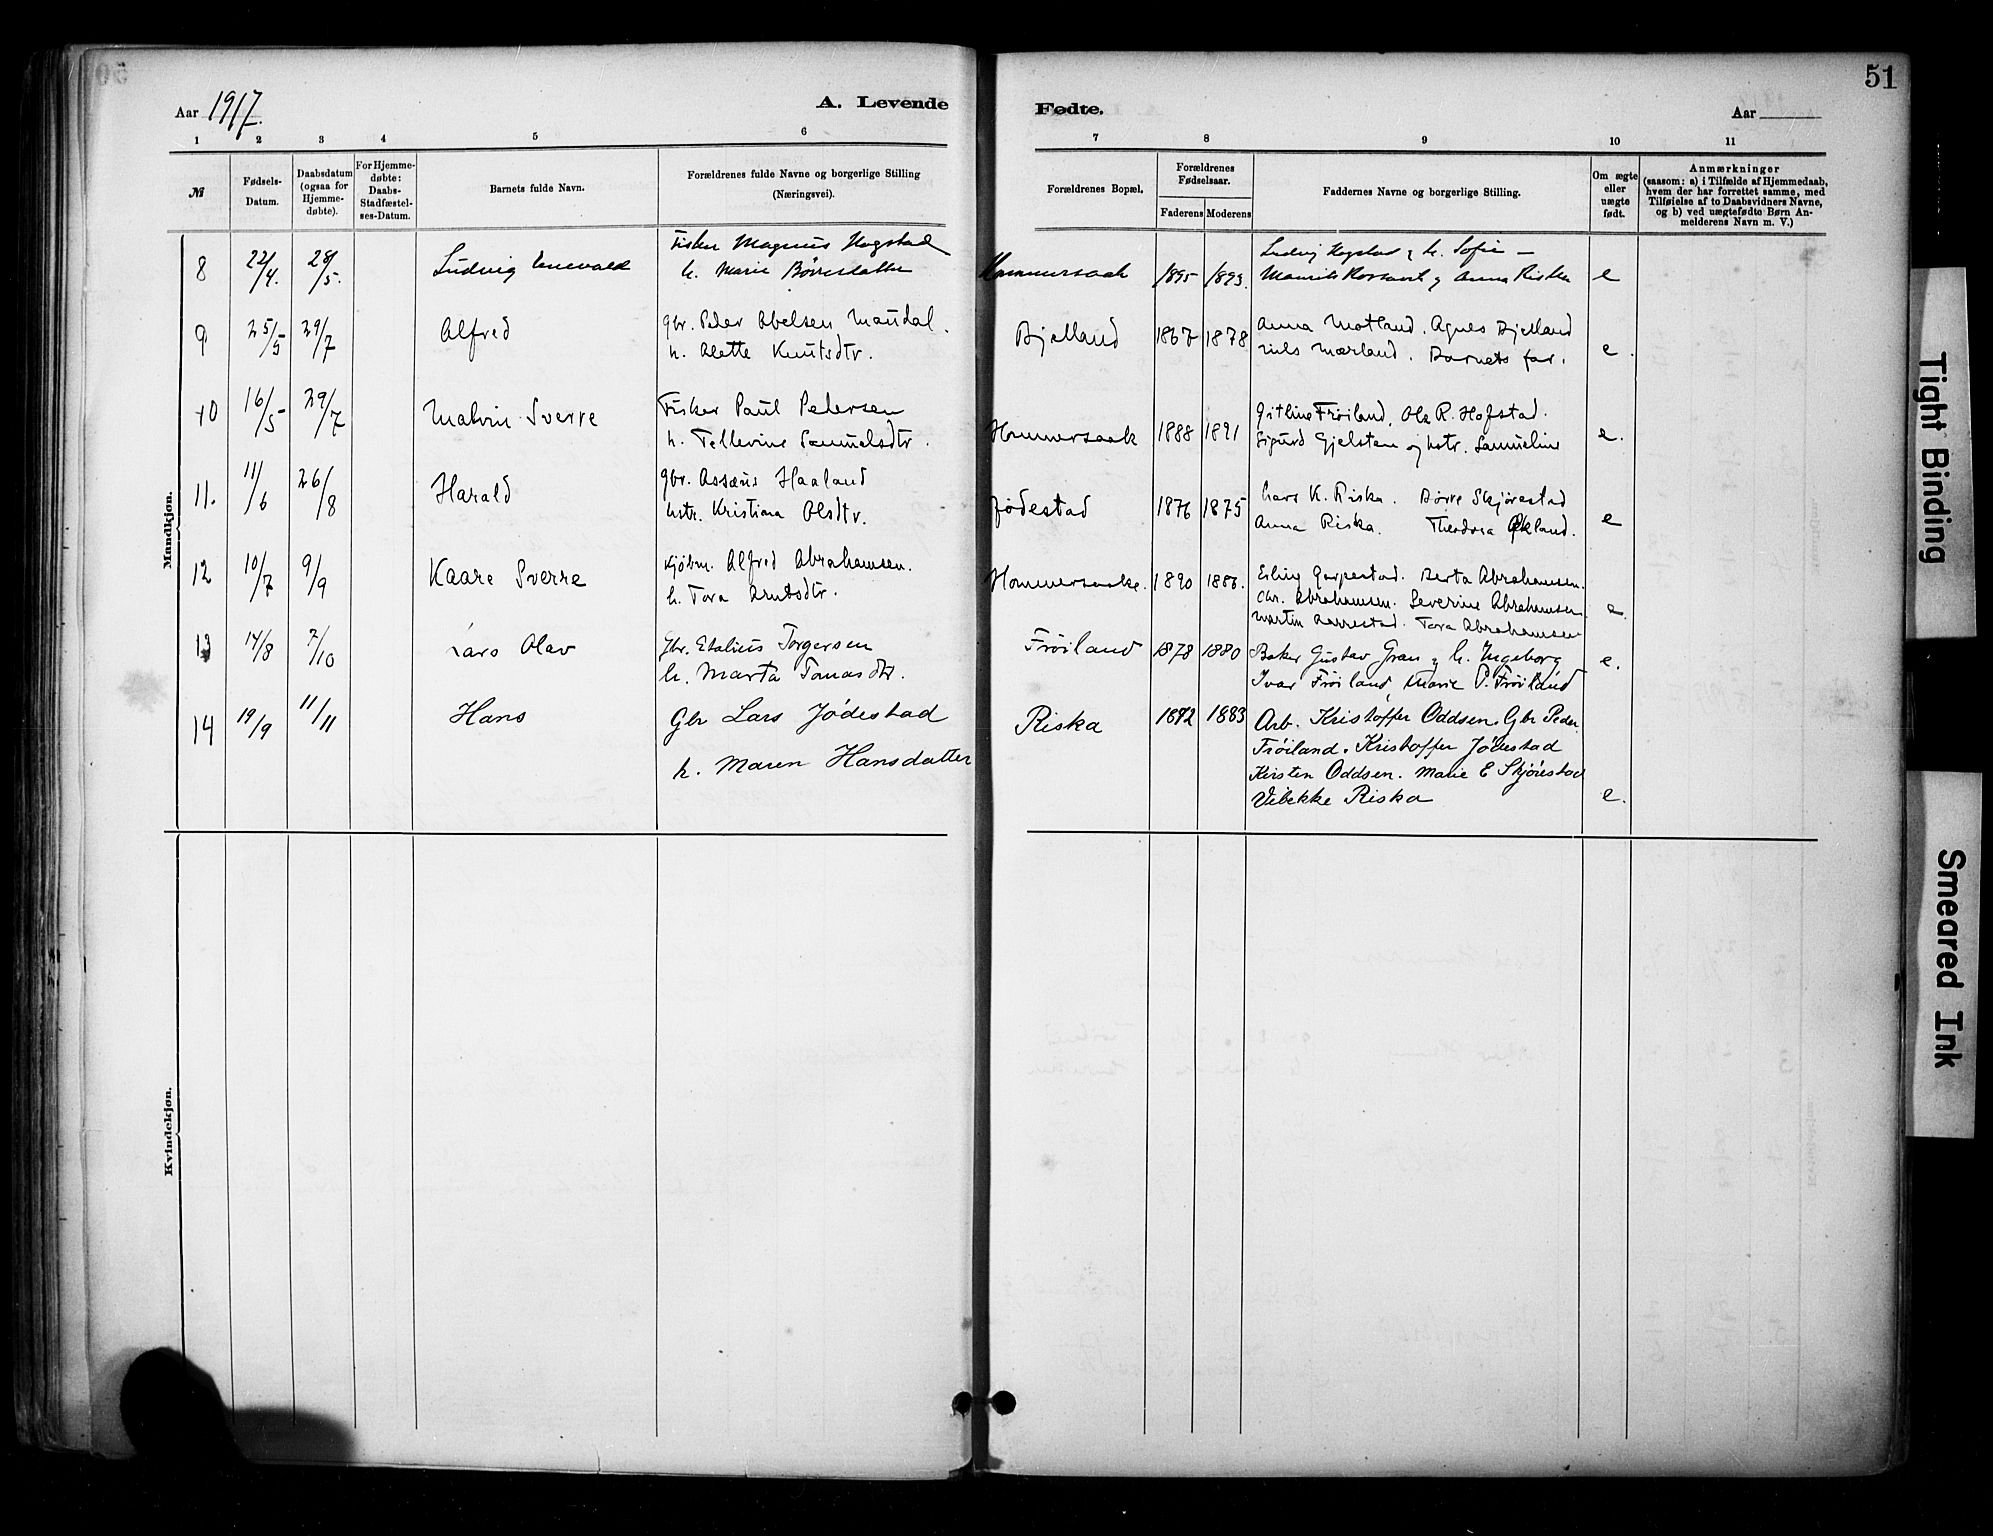 51
Aar 1917.
A. Levende Fødte.
Aar
1 2 3 4 5 6 7 8 9 10 11
№
Fødsels-
Datum.
Daabsdatum
(ogsaa for
Hjemme-
døbte).
For Hjemme-
døbte:
Daabs-
Stadfæstel-
ses-Datum.
Barnets fulde Navn.
Forældrenes fulde Navne og borgerlige Stilling
(Næringsvei).
Forældrenes Bopæl.
Forældrenes
Fødselsaar.
Faderens Moderens
Faddernes Navne og borgerlige Stilling.
Om ægte
eller
uægte
født.
Anmærkninger
(saasom: a) i Tilfælde af Hjemmedaab,
hvem der har forrettet samme, med
Tilføielse af to Daabsvidners Navne,
og b) ved uægtefødte Børn An-
melderens Navn m. V.)
Mandkjøn.
8 22/4. 28/5. Ludvig Enevald
Fisker Magnus Hogstad
h. Marie Børresdatter
Hommersaak 1895 1893.
Ludvig Hogstad & h. Sofie –
Rossavik & Anna Riska
e
9 25/5 29/7 Alfred
gbr. Peder Abelsen Maudal.
h. Alette Knutsdtr.
Bjelland 1867 1878
Anna Motland. Agnes Bjelland
Nils Mærland. Barnets far.
e.
10 16/5 29/7 Malvin Sverre
Fisker Paul Pedersen
h. Tellevine Samuelsdtr.
Hommersaak 1888 1891
Gitline Frøiland, Ole R. Hofstad.
Sigurd Gjelsten og hstr. Samueline
e.
11. 11/6 26/8 Harald
gbr. Assæus Haaland
hstr. Kristiana Olsdtr.
Jødestad 1876 1875
Lars K. Riska. Børre Skjørestad
Anna Riska. Theodora Økland.
e
12 10/7 9/9 Kaare Sverre
Kjøbm. Alfred Abrahamsen.
h. Tora Arntsdtr.
Hommersaake. 1890 1886.
Erling Garpestad. Berta Abrahamsen.
Chr. Abrahamsen. Severine Abrahamsen
Martin Aarrestad. Tora Abrahamsen
e.
13 14/8 7/10 Lars Olav
Gbr. Etalius Torgersen
h. Marta Tomasdtr.
Frøiland 1878 1880
Baker Gustav Gran & h. Ingeborg
Ivar Frøiland, Marie P. Frøiland
e.
14 19/9 11/11 Hans
Gbr Lars Jödestad
h. Maren Hansdatter
Riska 1883
Arb. Kristoffer Oddsen. Gbr Peder
Fröiland. Kristoffer Jödestad
Kirsten Oddsen. Marie E Skjörestad
Vibekke Riska
e.
Kvindekjøn.
Tight Binding
Smeared Ink